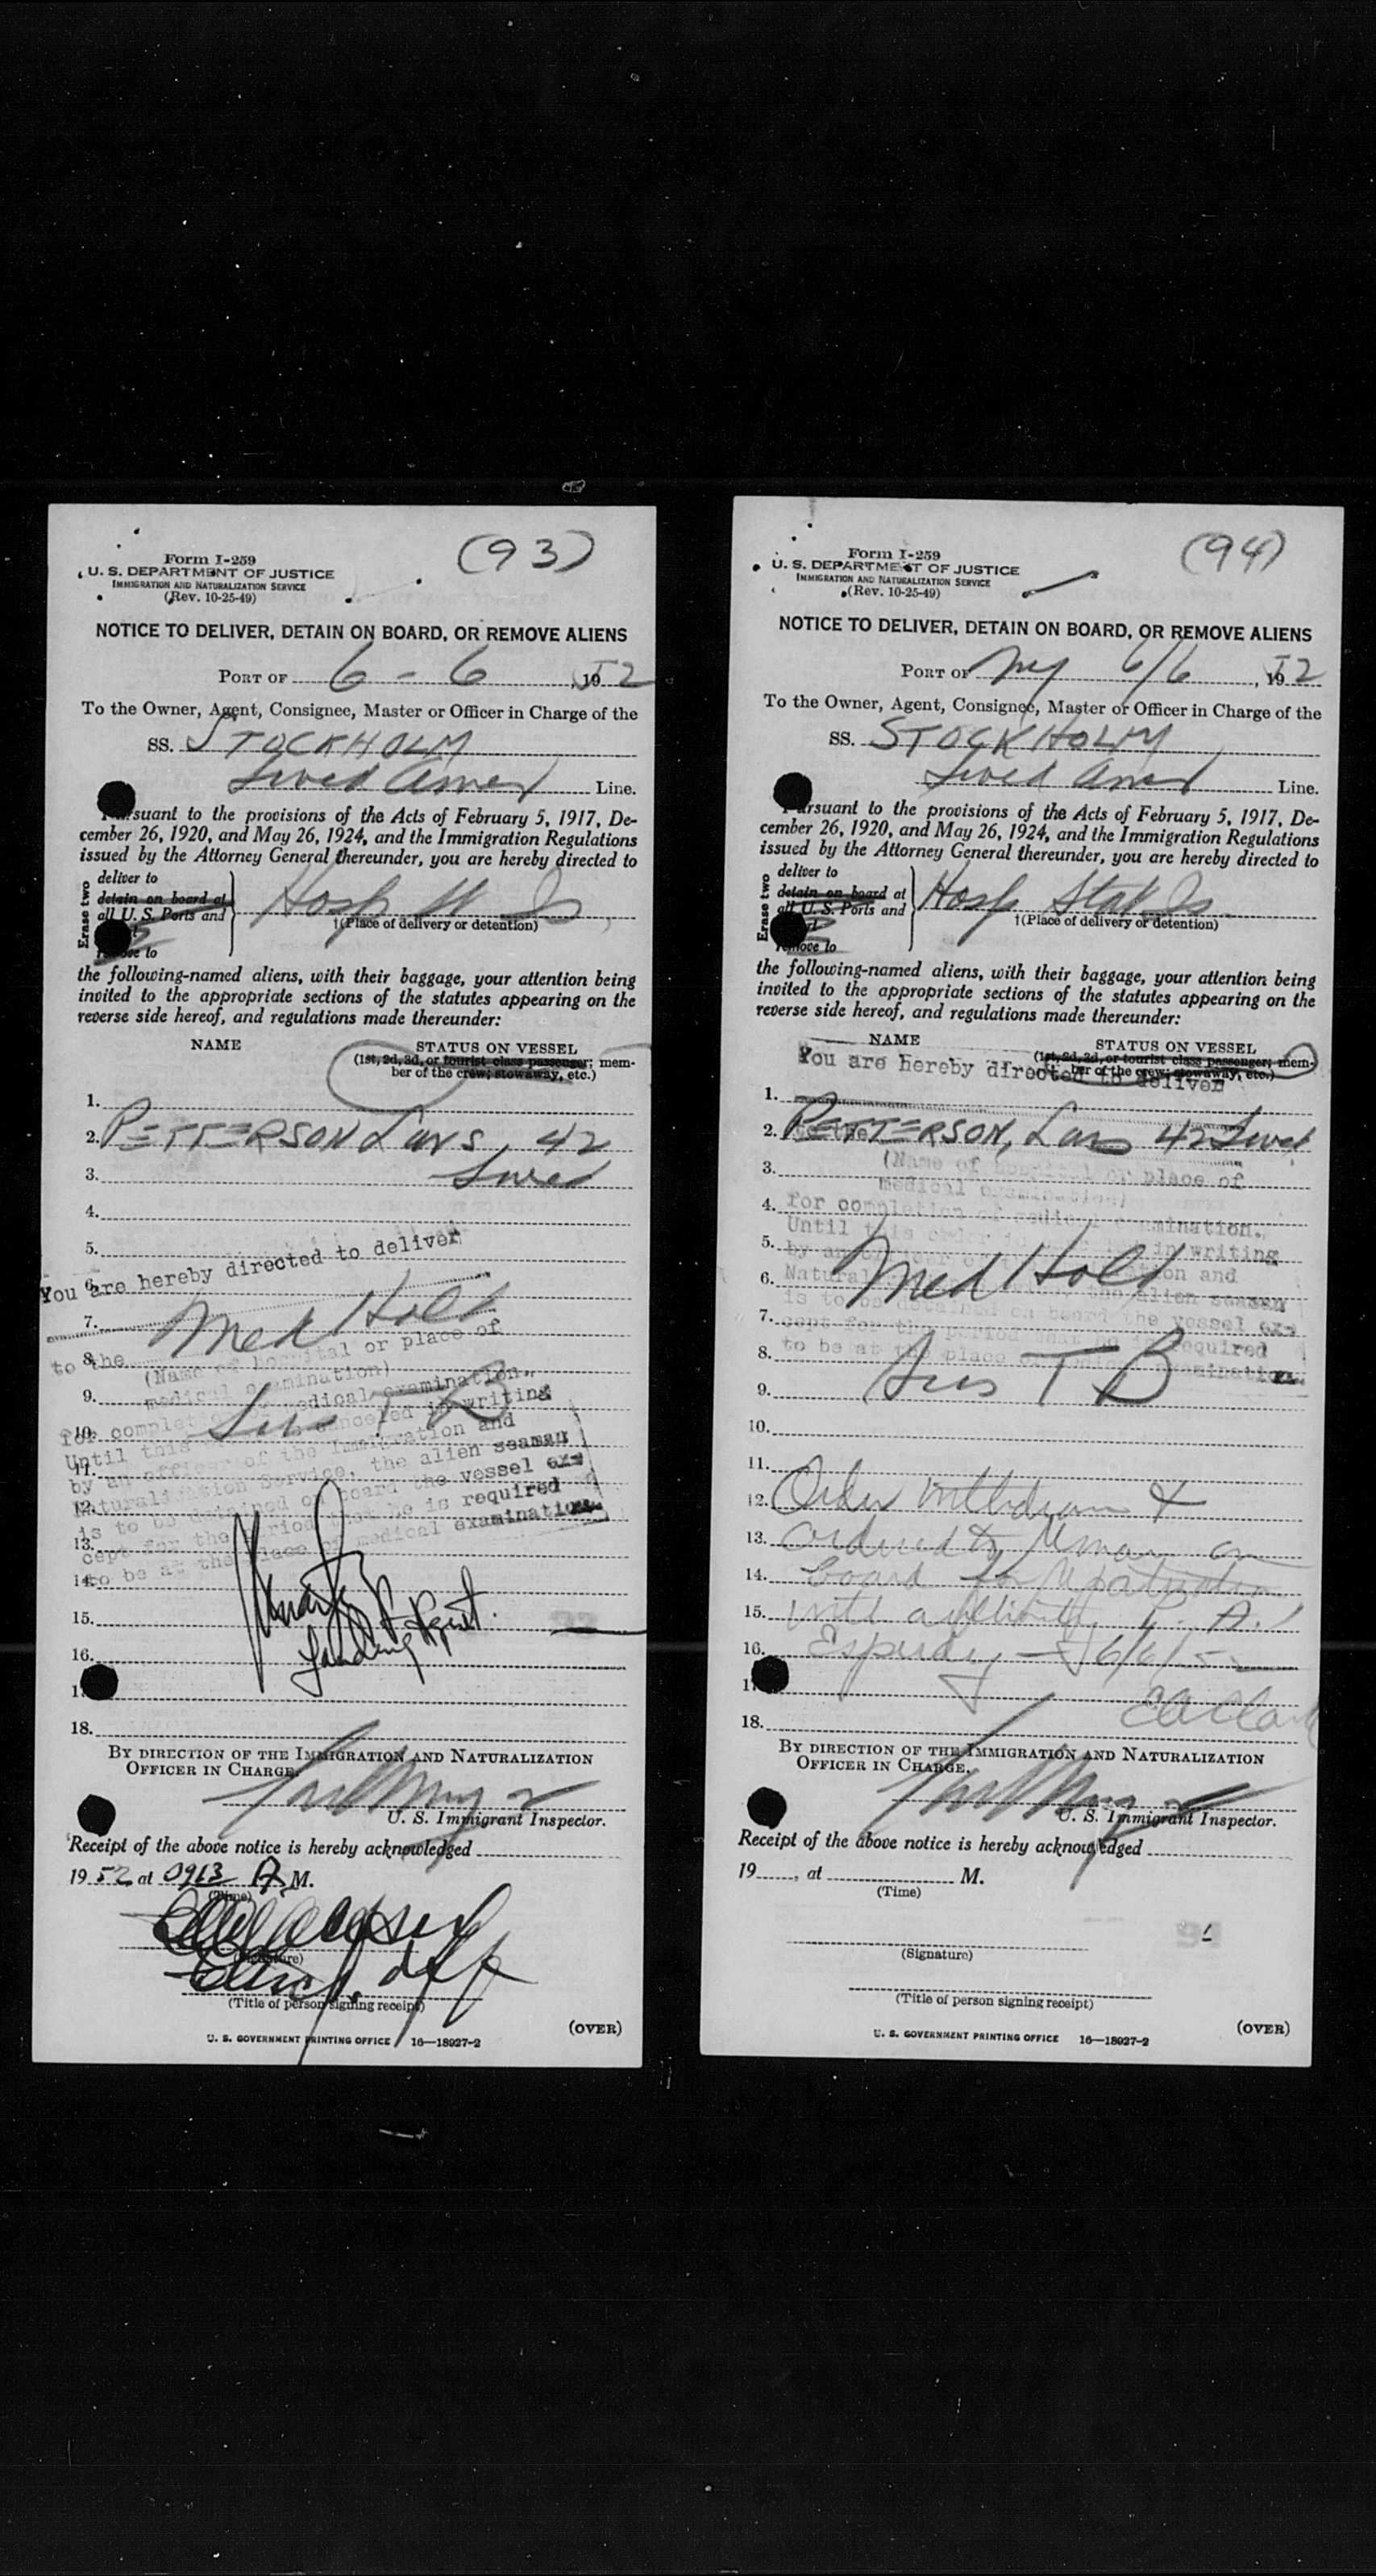 (93)
Form I-259
U. S. DEPARTMENT OF JUSTICE
IMMIGRATION AND NATURALIZATION SERVICE
(Rev. 10-25-49)
NOTICE TO DELIVER, DETAIN ON BOARD, OR REMOVE ALIENS
PORT OF 6 - 6, 1952
To the Owner, Agent, Consignee, Master or Officer in Charge of the
SS. STOCKHOLM
Swed Amer Line.
Pursuant to the provisions of the Acts of February 5, 1917, De-
cember 26, 1920, and May 26, 1924, and the Immigration Regulations
issued by the Attorney General thereunder, you are hereby directed to
Erase two
deliver to
detain on board at
all U. S. Ports and
remove to
Hosp
†(Place of delivery or detention)
the following-named aliens, with their baggage, your attention being
invited to the appropriate sections of the statutes appearing on the
reverse side hereof, and regulations made thereunder:
NAME STATUS ON VESSEL
(1st, 2d, 3d, or tourist class passenger; mem-
ber of the crew; stowaway, etc.)
1.
2. PETTERSON Lars, 42
3. Swed
4.
5.
You are hereby directed to deliver
6.
7. Med Hold
8. to the
(Name of hospital or place of
medical examination)
9.
10. for completion of medical examination.
Until this order is canceled in writing
11. by an officer of the Immigration and
Naturalization Service, the alien seaman
12. is to be detained on board the vessel ex-
cept for the period that he is required
13. to be at the place of medical examination
14.
15. Landing Agent.
16.
17.
18.
BY DIRECTION OF THE IMMIGRATION AND NATURALIZATION
OFFICER IN CHARGE.
U. S. Immigrant Inspector.
Receipt of the above notice is hereby acknowledged
1952 at 0913 A M.
(Time)
(Signature)
(Title of person signing receipt)
(OVER)
U. S. GOVERNMENT PRINTING OFFICE 16—18927-2
(94)
Form I-259
U. S. DEPARTMENT OF JUSTICE
IMMIGRATION AND NATURALIZATION SERVICE
(Rev. 10-25-49)
NOTICE TO DELIVER, DETAIN ON BOARD, OR REMOVE ALIENS
PORT OF NY 6/6, 1952
To the Owner, Agent, Consignee, Master or Officer in Charge of the
SS. STOCKHOLM
Swed Amer Line.
Pursuant to the provisions of the Acts of February 5, 1917, De-
cember 26, 1920, and May 26, 1924, and the Immigration Regulations
issued by the Attorney General thereunder, you are hereby directed to
Erase two
deliver to
detain on board at
all U. S. Ports and
remove to
Hosp
†(Place of delivery or detention)
the following-named aliens, with their baggage, your attention being
invited to the appropriate sections of the statutes appearing on the
reverse side hereof, and regulations made thereunder:
NAME STATUS ON VESSEL
(1st, 2d, 3d, or tourist class passenger; mem-
ber of the crew; stowaway, etc.)
You are hereby directed to deliver
1.
2. PETTERSON, Lars 42 Swed
3. (Name of hospital or place of
medical examination)
4. for completion of medical examination.
Until this order is canceled in writing
5. by an officer of the Immigration and
6. Med Hold
Naturalization Service, the alien seaman
7. is to be detained on board the vessel ex-
cept for the period that he is required
8. to be at the place of medical examination
9. Sus T B
10.
11.
12. Order withdrawn &
13. ordered to remain on
14. board for
15. P. A.
16. Esperdy — 6/6/52
17.
18.
BY DIRECTION OF THE IMMIGRATION AND NATURALIZATION
OFFICER IN CHARGE.
U. S. Immigrant Inspector.
Receipt of the above notice is hereby acknowledged
19, at M.
(Time)
(Signature)
(Title of person signing receipt)
(OVER)
U. S. GOVERNMENT PRINTING OFFICE 16—18927-2